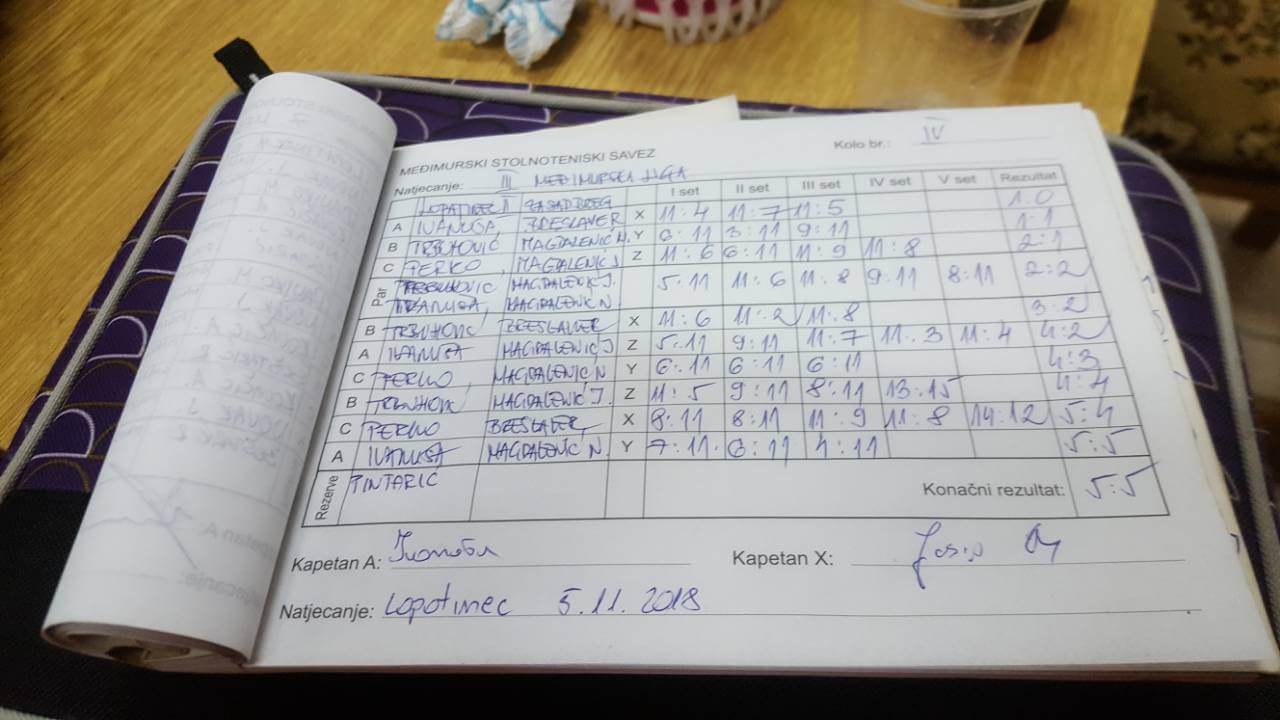 MEĐIMURSKI STOLNOTENISKI SAVEZ Kolo br.: IV
Natjecanje: III MEĐIMURSKA LIGA
I set II set III set IV set V set Rezultat
LOPATINEC II ZASADBREG
A IVANUSA BRESLAVER X 11:4 11:7 11:5 1:0
B TRSTUHOVIC MAGDALENIC N. Y 6:11 3:11 9:11 1:1
C PERKO MAGDALENIC J Z 11:6 6:11 11:9 11:8 2:1
Par MAGDALENIC J. 5:11 11:6 11:8 9:11 8:11 2:2
IVANUSA, MAGDALENIC N.
B BRESLAVER X 11:6 11:2 11:8 3:2
A IVANUSA MAGDALENIC J Z 5:11 9:11 11:7 11:3 11:4 4:2
C PERKO, MAGDALENIC N Y 6:11 6:11 6:11 4:3
B MAGDALENIC J. Z 11:5 9:11 8:11 13:15 4:4
C PERKO BRESLAVER X 8:11 8:11 11:9 11:8 14:12 5:4
A IVANUSA MAGDALENIC N. Y 7:11 6:11 4:11 5:5
Rezerve PINTARIĆ Konačni rezultat: 5:5
Kapetan A: Kapetan X: Josip
Natjecanje: Lopatinec 5.11.2018